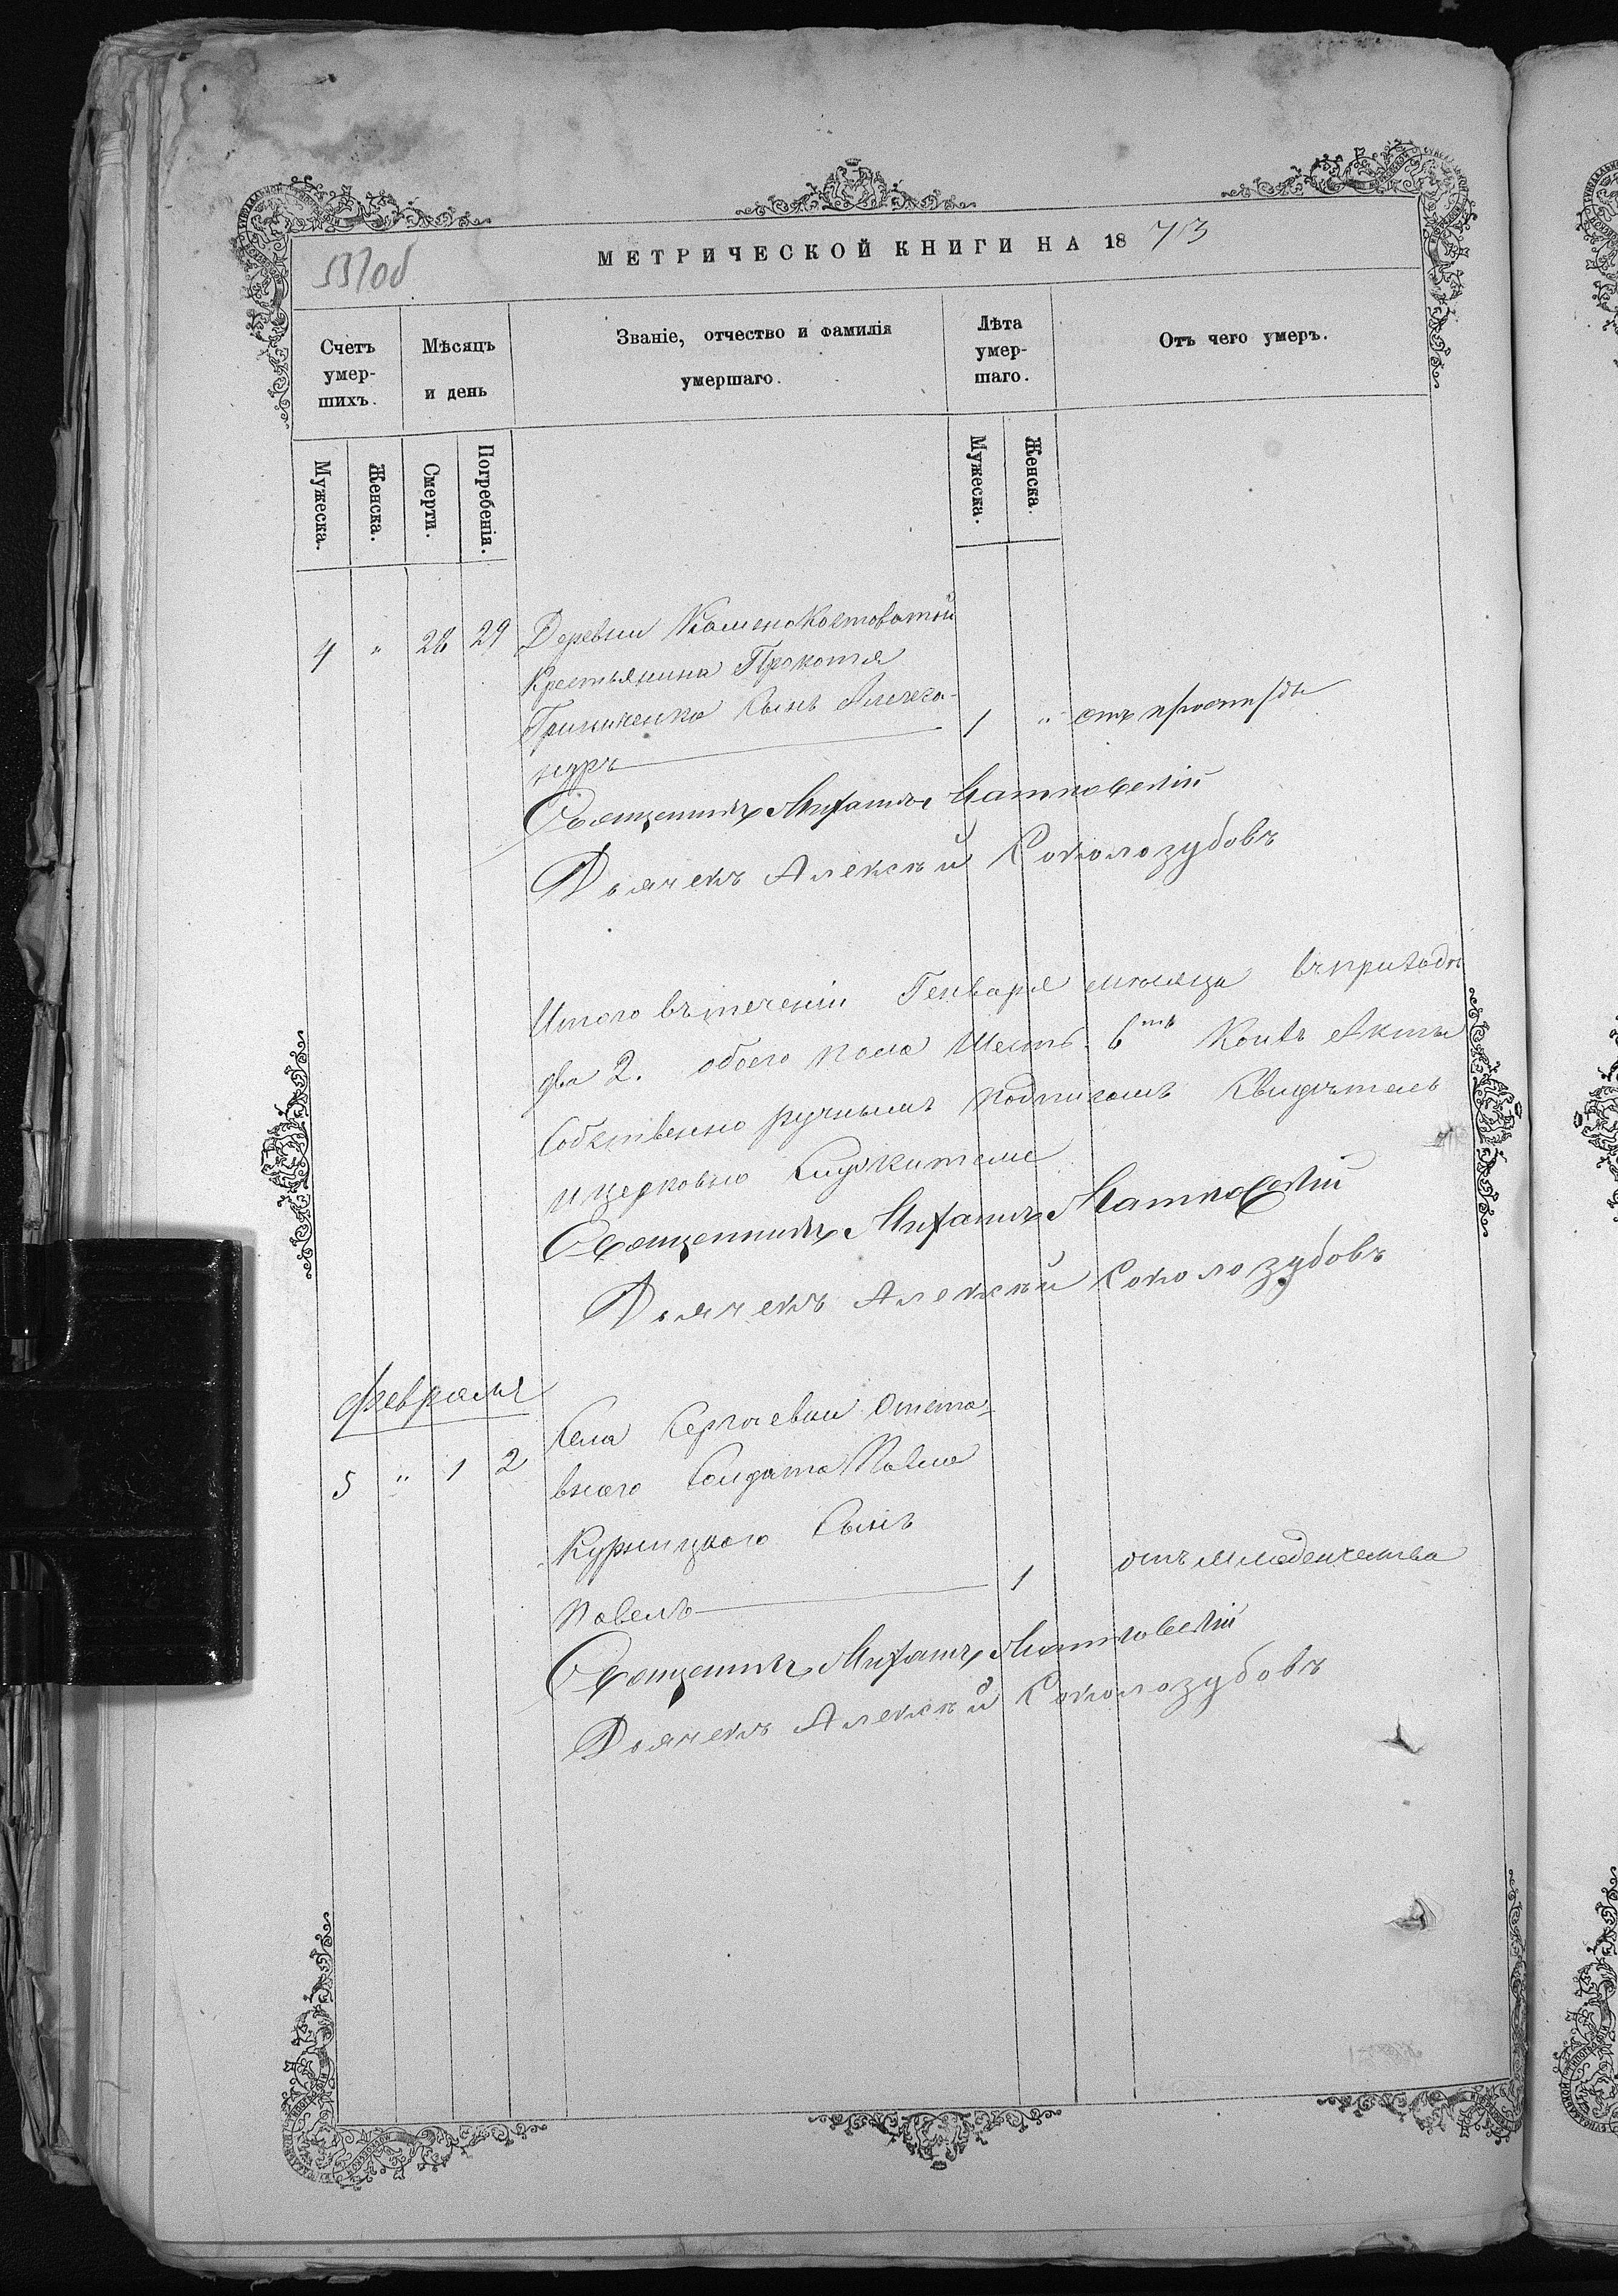 МЕТРИЧЕСКОЙ КНИГИ НА 18 73
Счетъ умер-шихъ.
Мѣсяцъ и день
Званіе, отчество и фамилія умершаго.
Лѣта умер-шаго.
Отъ чего умеръ.
Мужеска.
Женска.
Смерти.
Погребенія.
Мужеска.
Женска.
4 " 28 29 Деревни Каменокостоватой
Крестьянина Прокопія
Сынъ Алекса-
ндръ 1 " отъ простуды
Священникъ Михаилъ
Дьячекъ Алексѣй Соколозубовъ
Итого въ теченіи Генваря мѣсяца
два 2. обоего пола Шесть.
Собственно ручнымъ подписомъ
и церковно
Священникъ Михаилъ
Дьячекъ Алексѣй Соколозубовъ
Февраль
5 " 1 2 Села Сергіевки Отста-
внаго Солдата Павла
Курницкого Сынъ
Павелъ 1 отъ младенчества
Священникъ Михаилъ
Дьячекъ Алексѣй Соколозубовъ